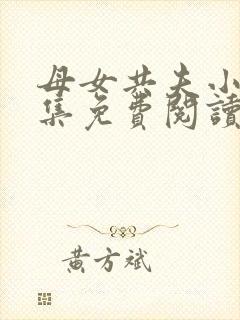 母女共夫小
集免費閱讀
黃方斌